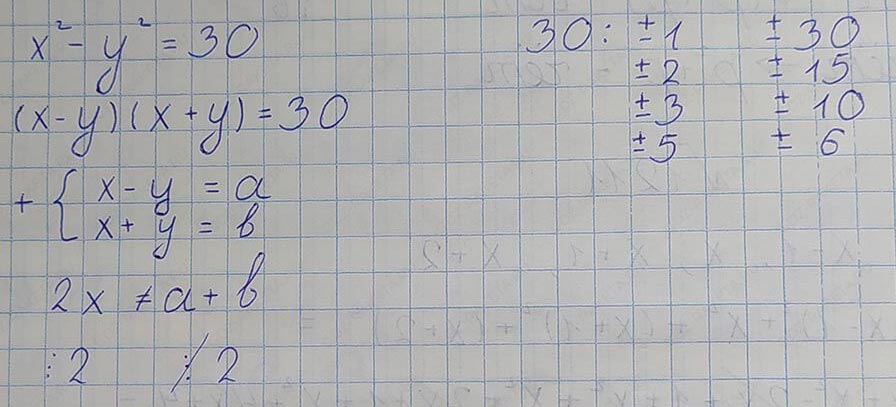 x² - y² = 30
(x - y)(x + y) = 30
+ { x - y = a
x + y = b
2x ≠ a + b
⋮ 2 ⋮̸ 2
30 : ± 1 ± 30
± 2 ± 15
± 3 ± 10
± 5 ± 6